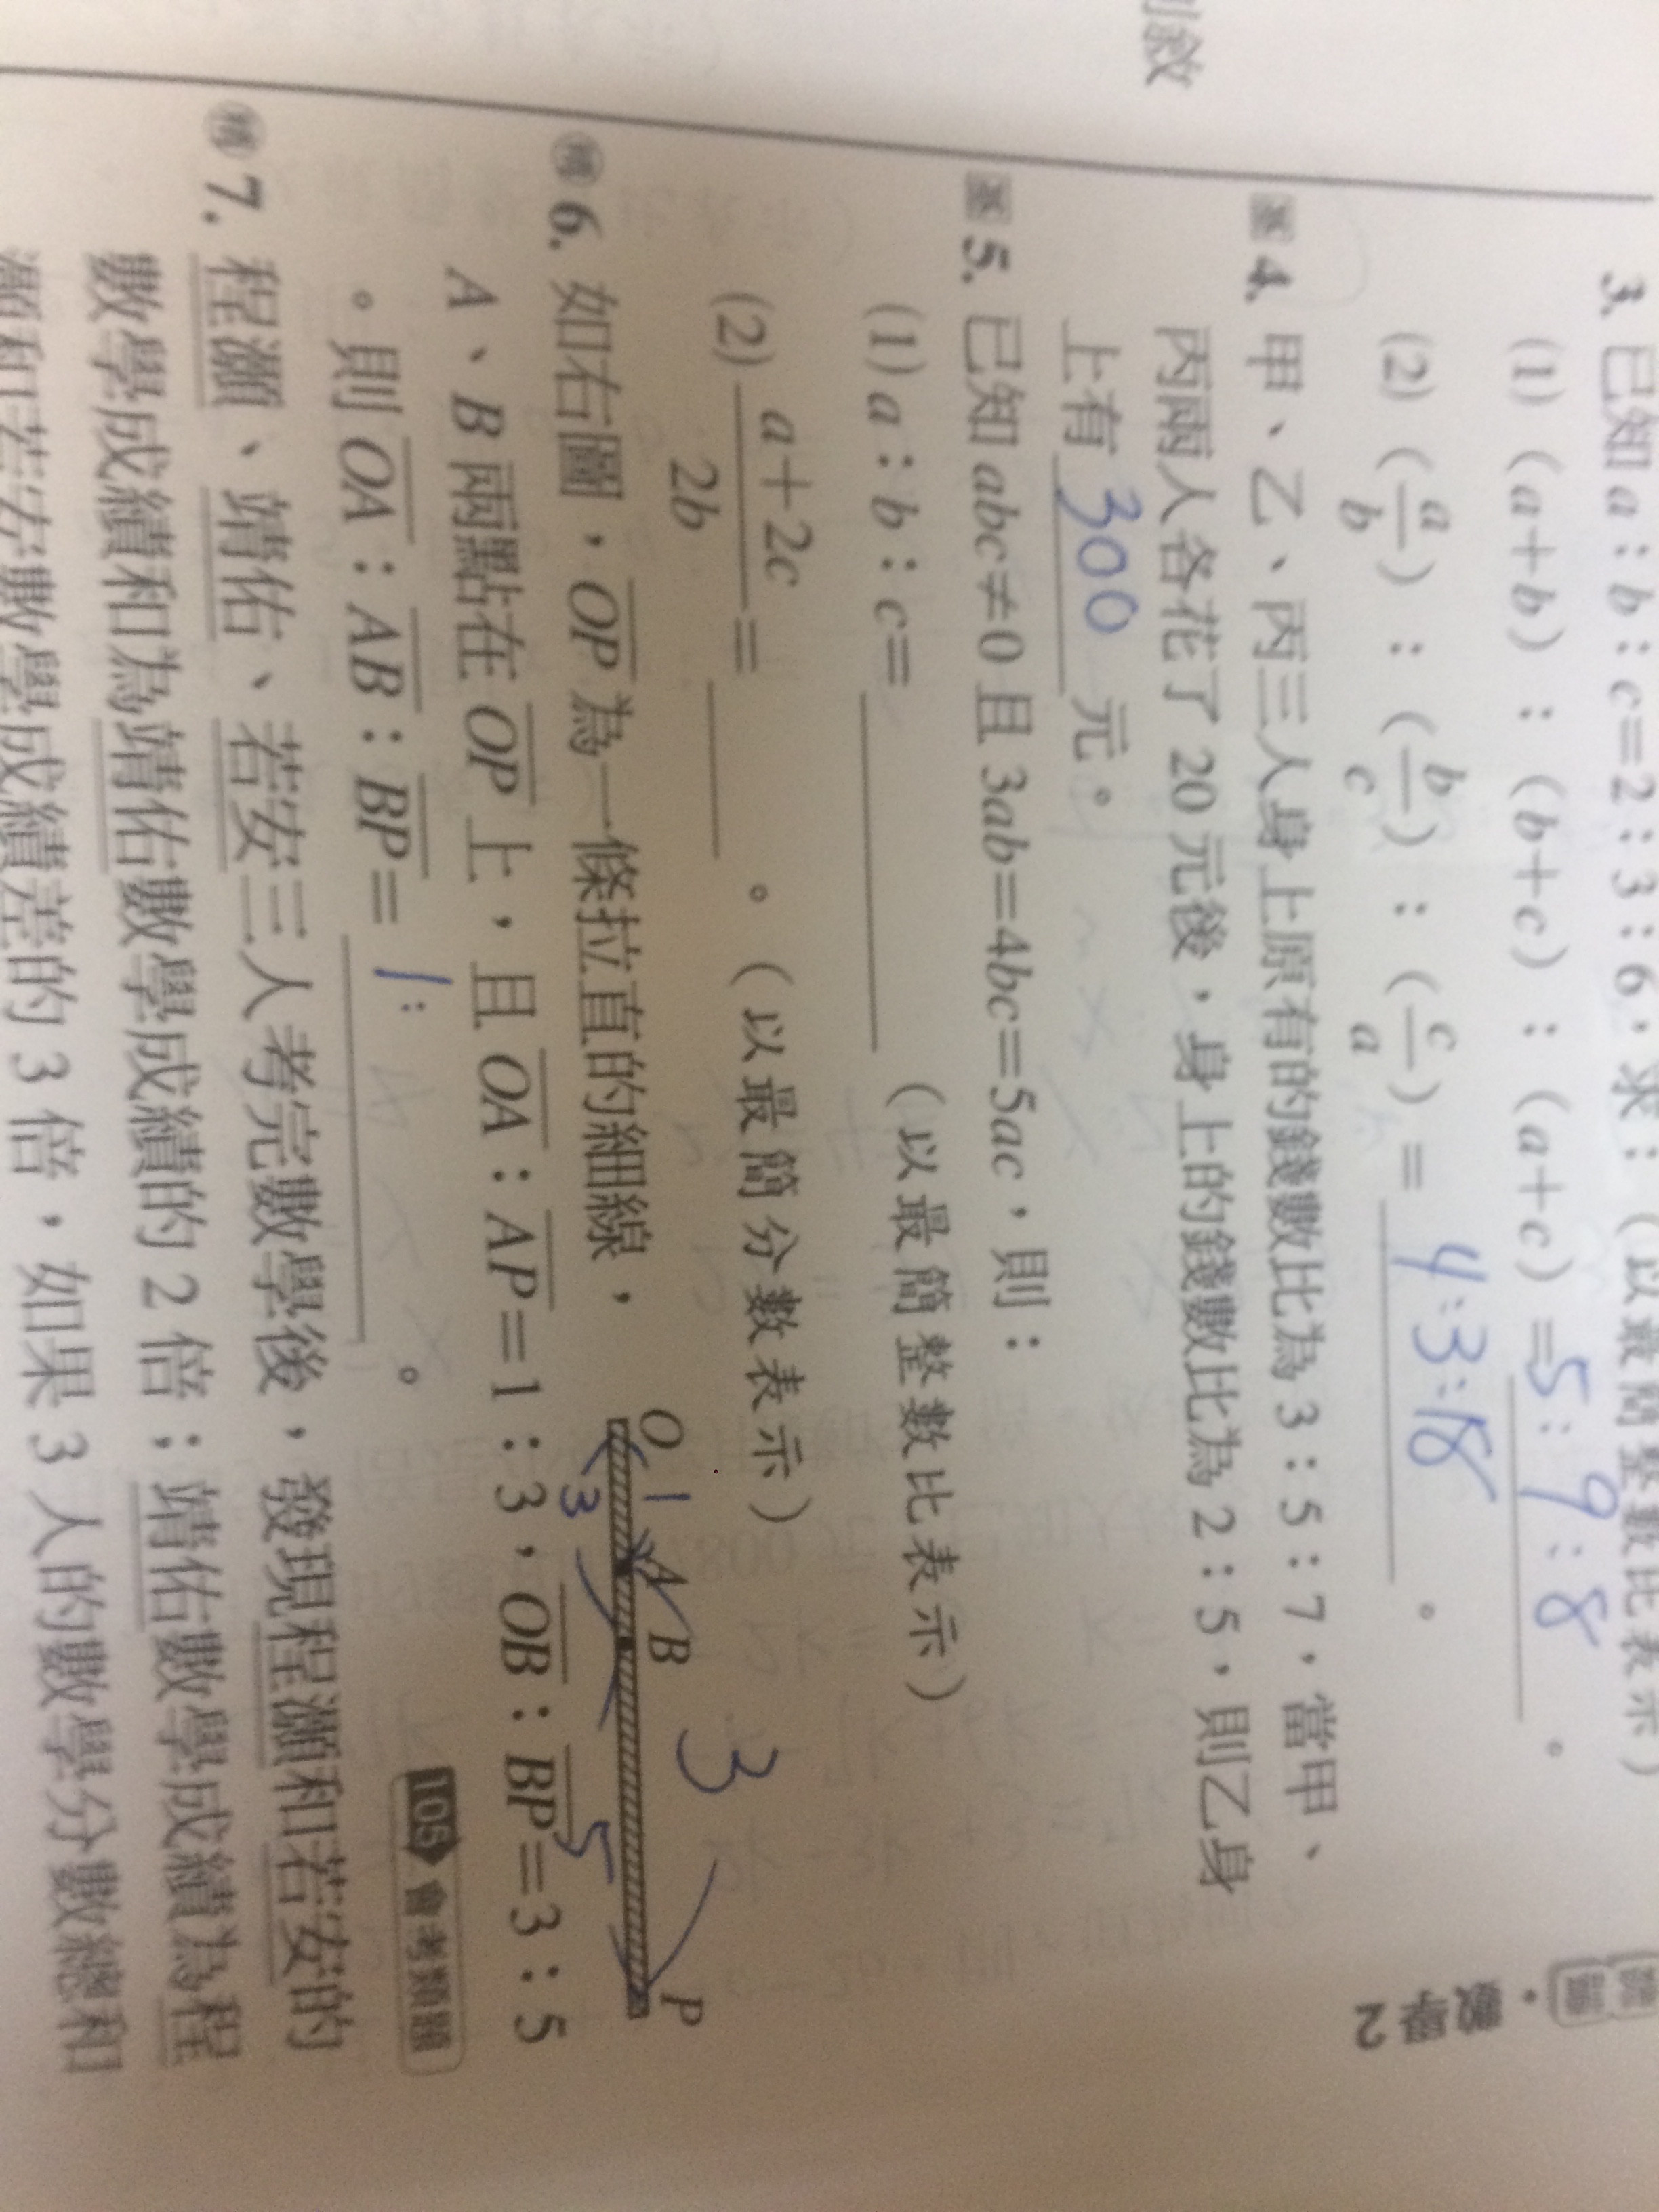 數學2
3. 已知 a：b：c=2：3：6，求：（以最簡整數比表示）
(1)（a+b）：（b+c）：（a+c）=5:9:8。
(2)（a/b）：（b/c）：（c/a）=4:3:18。
4. 甲、乙、丙三人身上原有的錢數比為 3：5：7，當甲、
丙兩人各花了 20 元後，身上的錢數比為 2：5，則乙身
上有 300 元。
5. 已知 abc≠0 且 3ab=4bc=5ac，則：
(1) a：b：c=（以最簡整數比表示）
(2) a+2c/2b=。（以最簡分數表示）
6. 如右圖，OP 為一條拉直的細線，
A、B 兩點在 OP 上，且 OA：AP=1：3，OB：BP=3：5
。則 OA：AB：BP=1:。
105 會考類題
O 1 A B P
3 3 5
7. 程灝、靖佑、若安三人考完數學後，發現程灝和若安的
數學成績和為靖佑數學成績的 2 倍；靖佑數學成績為程
灝和若安數學成績差的 3 倍，如果 3 人的數學分數總和